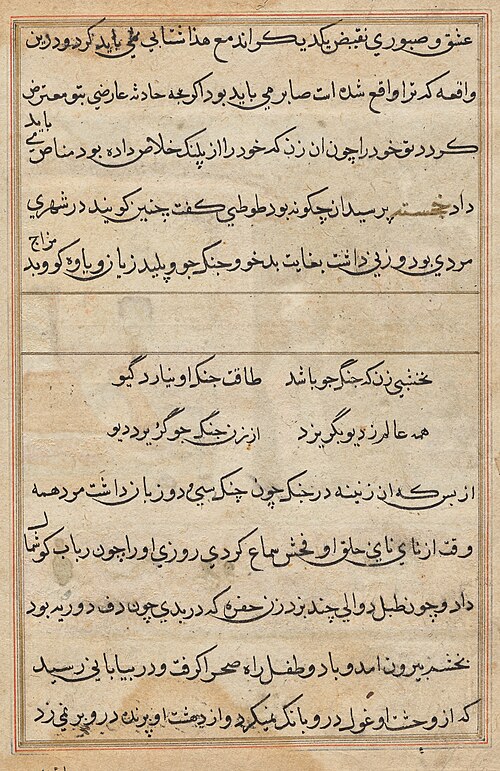 عشق و صبوري نقیض یکدیکراند مع هذا شتابی نمی باید کرد و درین
واقعه که ترا واقع شده است صابر می باید بود اکرچه حادثه عارضی بتو معترض
کردد تو خود را چون ان زن که خود را از پلنک خلاص داده بود مناص می باید
داد خجسته پرسید ان چکونه بود طوطی کفت چنین کویند در شهری
مردی بود و زنی داشت بغایت بدخو و جنک جو و پلید زبان و یاوه کو و بد مزاج
نخشبی زن که جنگ جو باشد طاقت جنک او نیارد گیو
همه عالم ز دیو بگریزد از زن جنگ جو گریزد دیو
از بس که ان زنینه در جنک چون چنک سی و دو زبان داشت مرد همه
وقت از نای نای حلق او فحش سماع کردی روزی او را چون رباب کوشمال
داد و چون طبل دوالی چند بزد زن حفره که در بدی چون دف دو رویه بود
بخشم بیرون امد و با دو طفل راه صحرا کرفت و در بیابانی رسید
که از وحشت او غول درو بانک نمیکرد و از دهشت او پرنده درو پر نمی زد